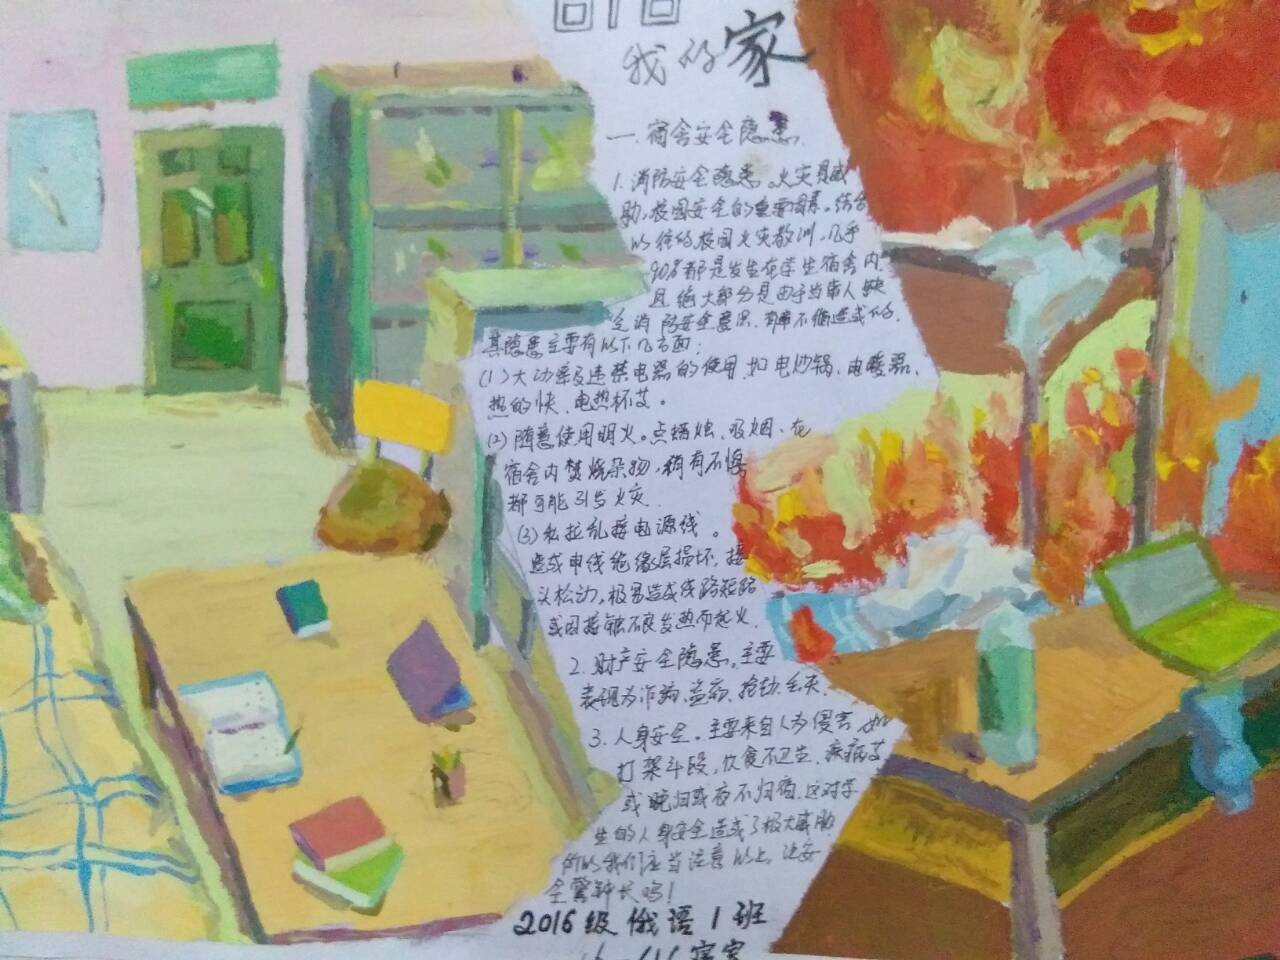 616
我的家
一. 宿舍安全隐患.
1. 消防安全隐患。火灾是威
胁,校园安全的重要因素,结合
以往的校园火灾教训,几乎
90%都是发生在学生宿舍内.
且绝大部分是由于当事人缺
乏消防安全意识、
其隐患主要有以下几方面:
(1)大功率及违禁电器的使用,如电炒锅、电暖器、
热的快、电热杯艾。
(2)随意使用明火。点蜡烛、吸烟、在
宿舍内焚烧杂物,稍有不慎
都可能引发火灾.
(3)私拉乱接电源线。
造成电线绝缘层损坏,接
头松动,极易造成线路短路
或因接触不良发热而起火.
2. 财产安全隐患。主要
表现为诈骗、盗窃、抢劫、丢失.
3. 人身安全。主要来自人为侵害,如
打架斗殴,饮食不卫生、疾病艾
或晚归或夜不归宿.这对学
生的人身安全造成了极大威胁
所以我们应当注意以上,让安
全警钟长鸣!
2016级俄语1班
616宿家